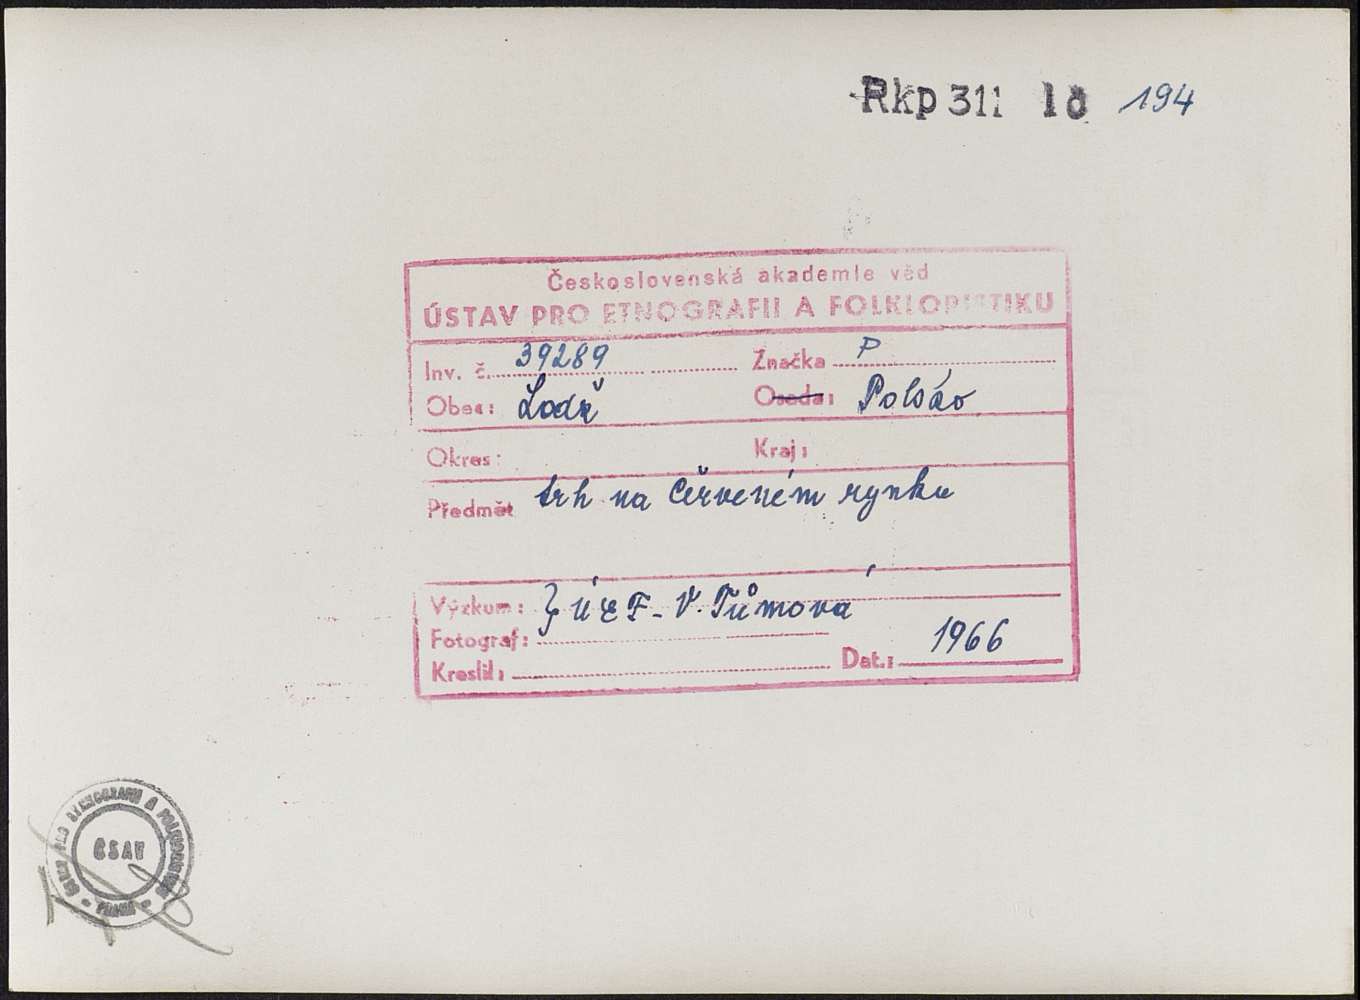 Rkp 311 10 194
Československá akademie věd
ÚSTAV PRO ETNOGRAFII A FOLKLORISTIKU
Inv. č. 39289 Značka P
Obec: Lodž Osada: Polsko
Okres: Kraj:
Předmět trh na Červeném rynku
Výzkum: ÚEF - V. Tůmová
Fotograf:
Kreslil: Dat.: 1966
ÚSTAV PRO ETNOGRAFII A FOLKLORISTIKU
ČSAV
- PRAHA -